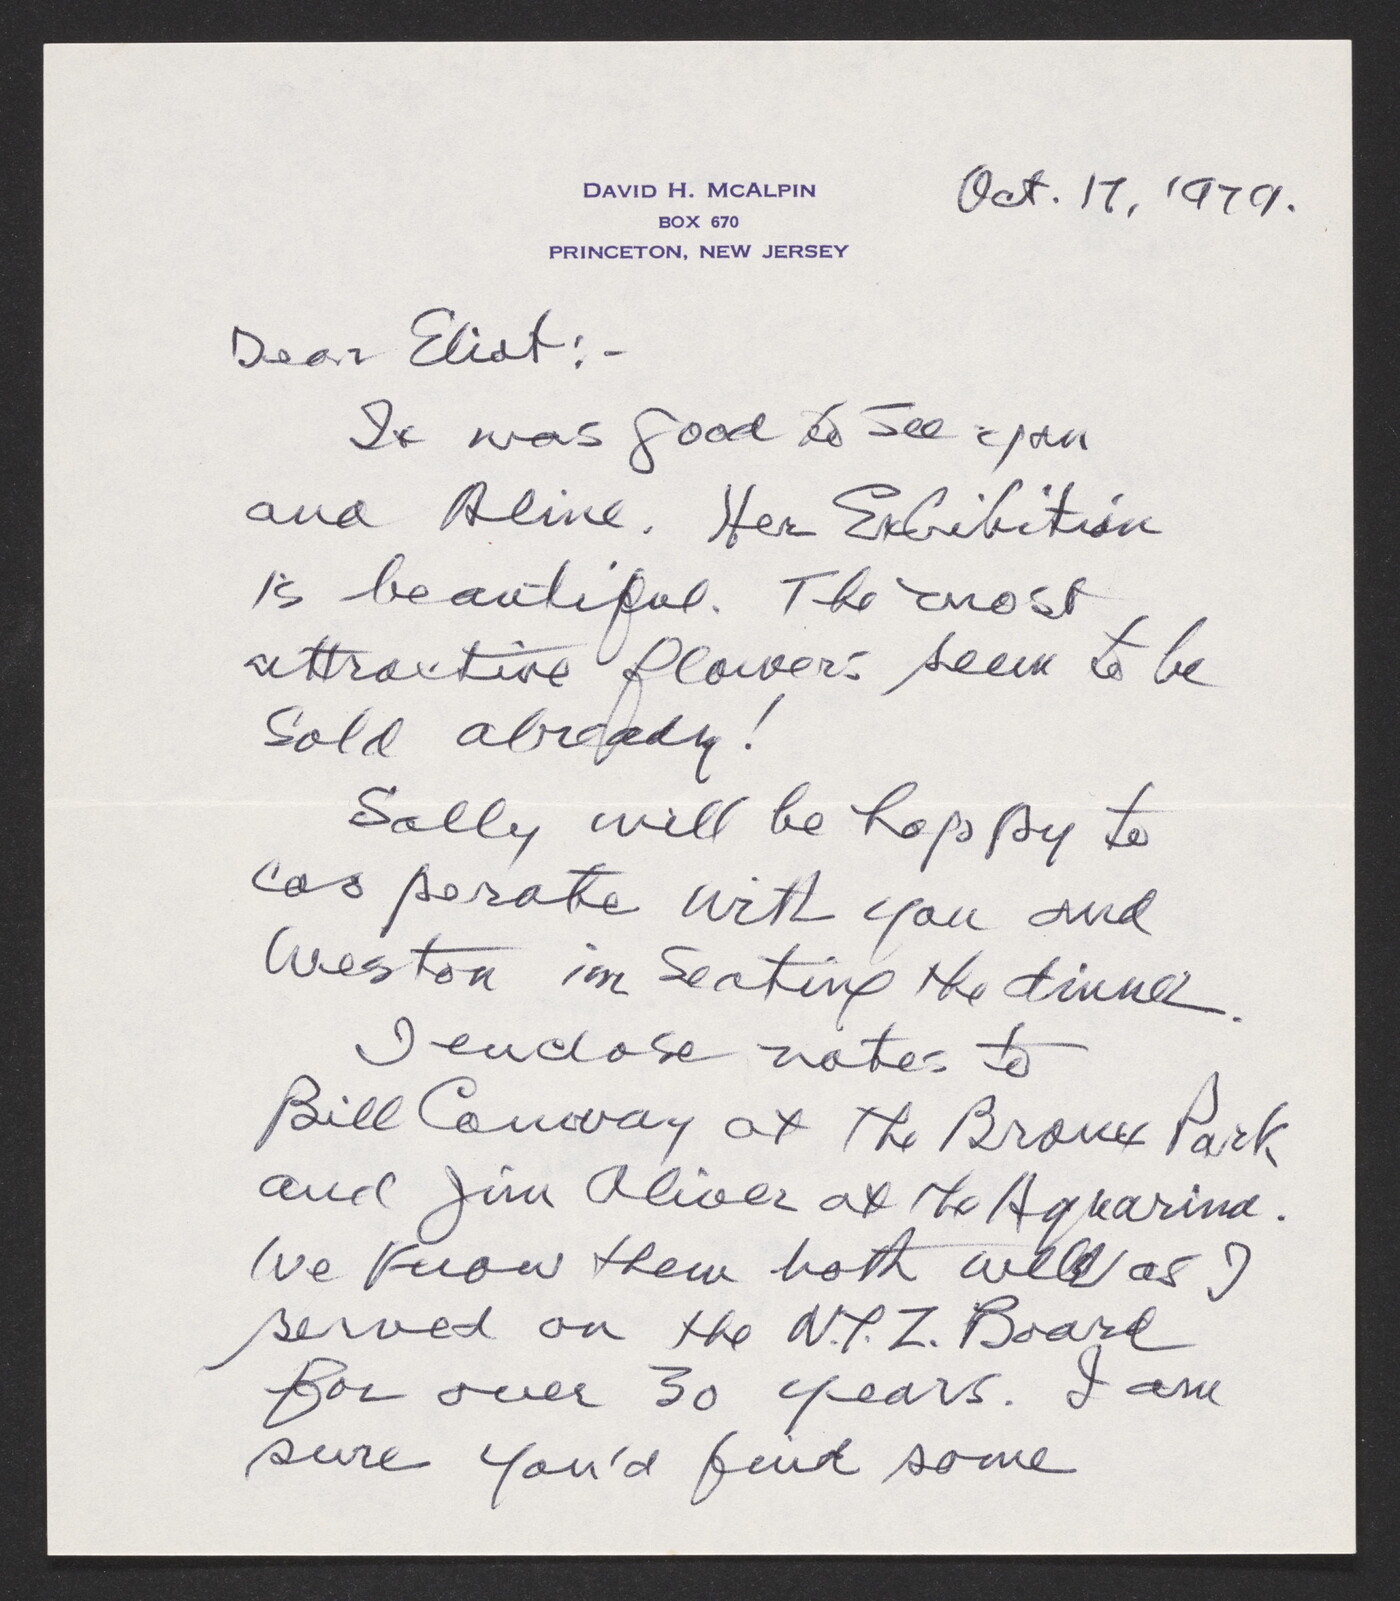 DAVID H. MCALPIN
BOX 670
PRINCETON, NEW JERSEY
Oct. 17, 1979.
Dear Eliot:-
It was good to see you
and Aline. Her Exhibition
is beautiful. The most
attractive flowers seem to be
sold already!
Sally will be happy to
cooperate with you and
Weston in seating the dinner.
I enclose notes to
Bill Conway at the Bronx Park
and Jim Oliver at the Aquarium.
We know them both well as I
served on the N.Y.Z. Board
for over 30 years. I am
sure you'd find some